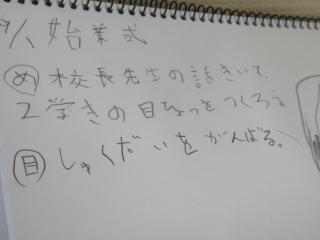 9/1 始業式
め 校長先生の話きいて、
2学きの目ひょうをつくろう
目 しゅくだいをがんばる。